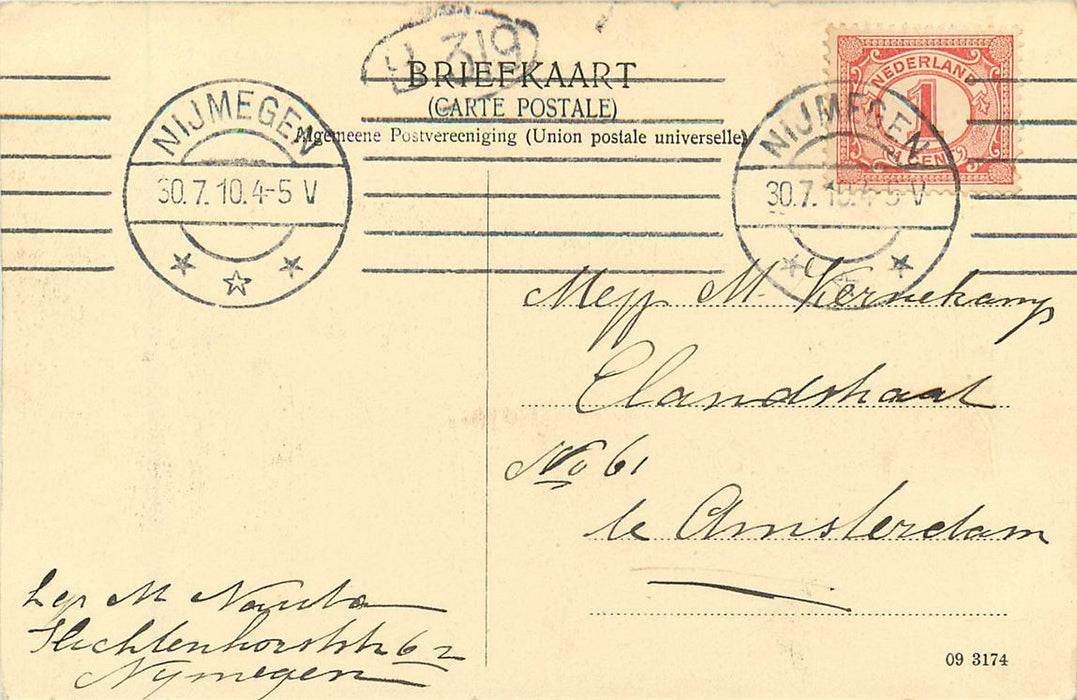 H 319
BRIEFKAART
(CARTE POSTALE)
Algemeene Postvereeniging (Union postale universelle)
NEDERLAND
1
CENT
NIJMEGEN
30.7.10.4-5 V
NIJMEGEN
30.7.10.4-5 V
Mejf M. Vernekamp
Elandstraat
No 61
te Amsterdam
M Nauta
62
Nymegen
09 3174